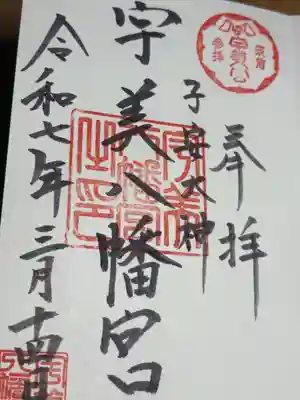 奉拝
子安大神
宇美八幡宮
令和七年三月十四日